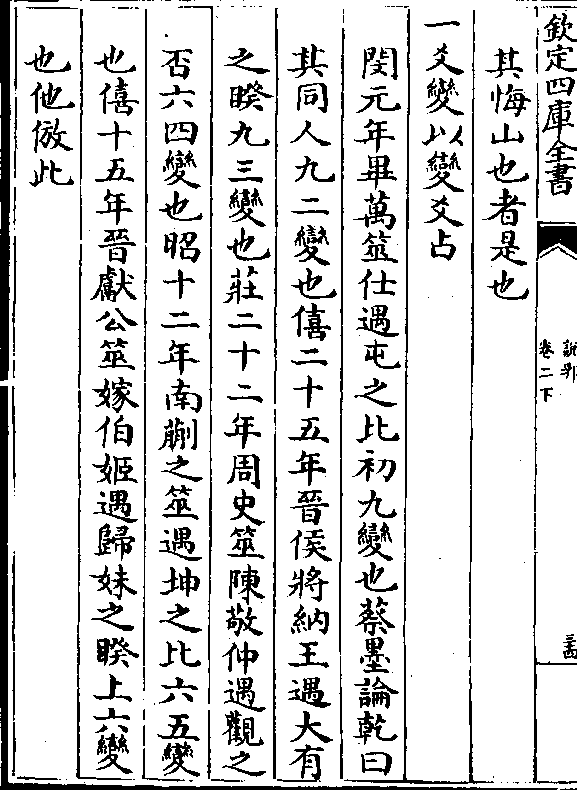 欽定四庫全書
卷二下
其悔山也者是也
一爻變以變爻占
閔元年畢萬筮仕遇屯之比初九變也蔡墨論乾曰
其同人九二變也僖二十五年晉侯將納王遇大有
之睽九三變也莊二十二年周史筮陳敬仲遇觀之
否六四變也昭十二年南蒯之筮遇坤之比六五變
也僖十五年晉獻公筮嫁伯姬遇歸妹之睽上六變
也他倣此